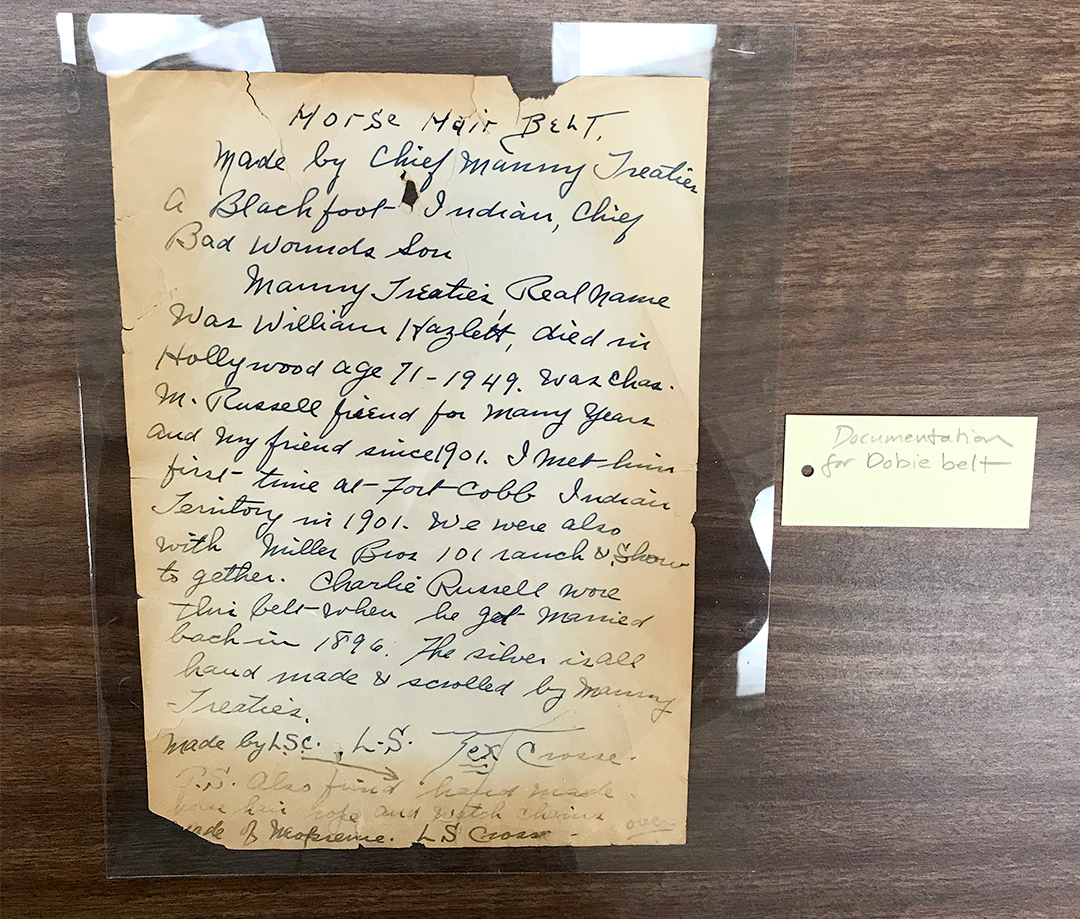 Horse Hair Belt.
Made by Chief Manny Treaties
A Blackfoot Indian, Chief
Bad Wounds Son
Manny Treaties Real Name
Was William Hazlett, died in
Hollywood age 71 - 1949. Was Chas.
M. Russell friend for many years
and my friend since 1901. I met him
first time at Fort Cobb Indian
Territory in 1901. We were also
with Miller Bros 101 ranch & Show
to gether. Charlie Russell wore
this belt when he got married
back in 1896. The silver is all
hand made & scrolled by Manny
Treaties.
Made by LSC. L.S. Tex Crosse.
P.S. Also find hand made
hair rope and watch chains
made of L S Crosse - over
Documentation
for Dobie belt